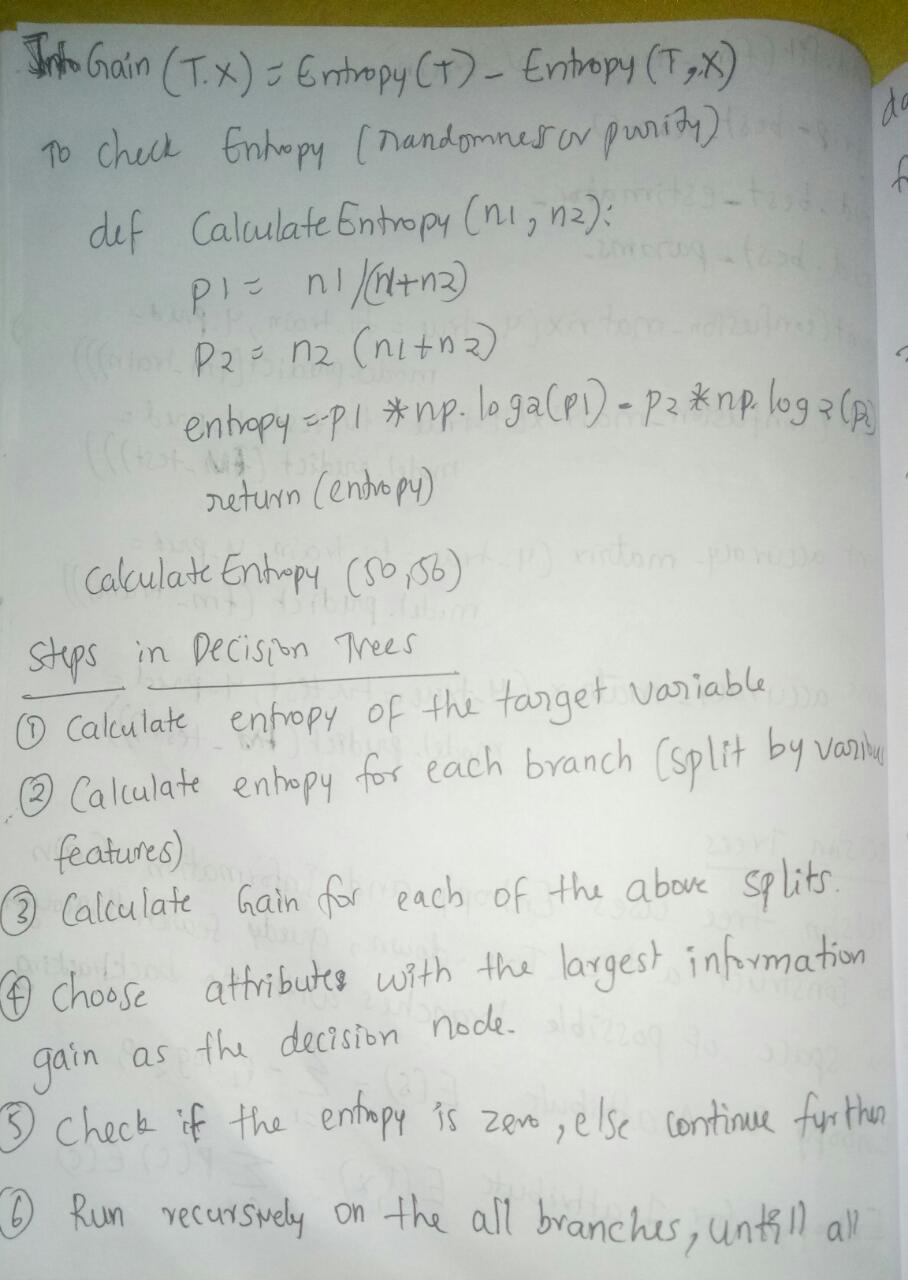 Info Gain (T.X) = Entropy (T) - Entropy (T,X)
To check Entropy (randomnes or purity)
def Calculate Entropy (n1, n2):
p1 = n1/(n1+n2)
P2 = n2 (n1+n2)
entropy =-p1 *np.log2(p1) - p2 *np.log2(p2)
return (entropy)
Calculate Entropy (50,56)
Steps in Decision Trees
① Calculate entropy of the target variable
② Calculate entropy for each branch (split by various
features)
③ Calculate Gain for each of the above splits.
④ Choose attributes with the largest information
gain as the decision node.
⑤ Check if the entropy is zero, else continue further
⑥ Run recursively on the all branches, untill all